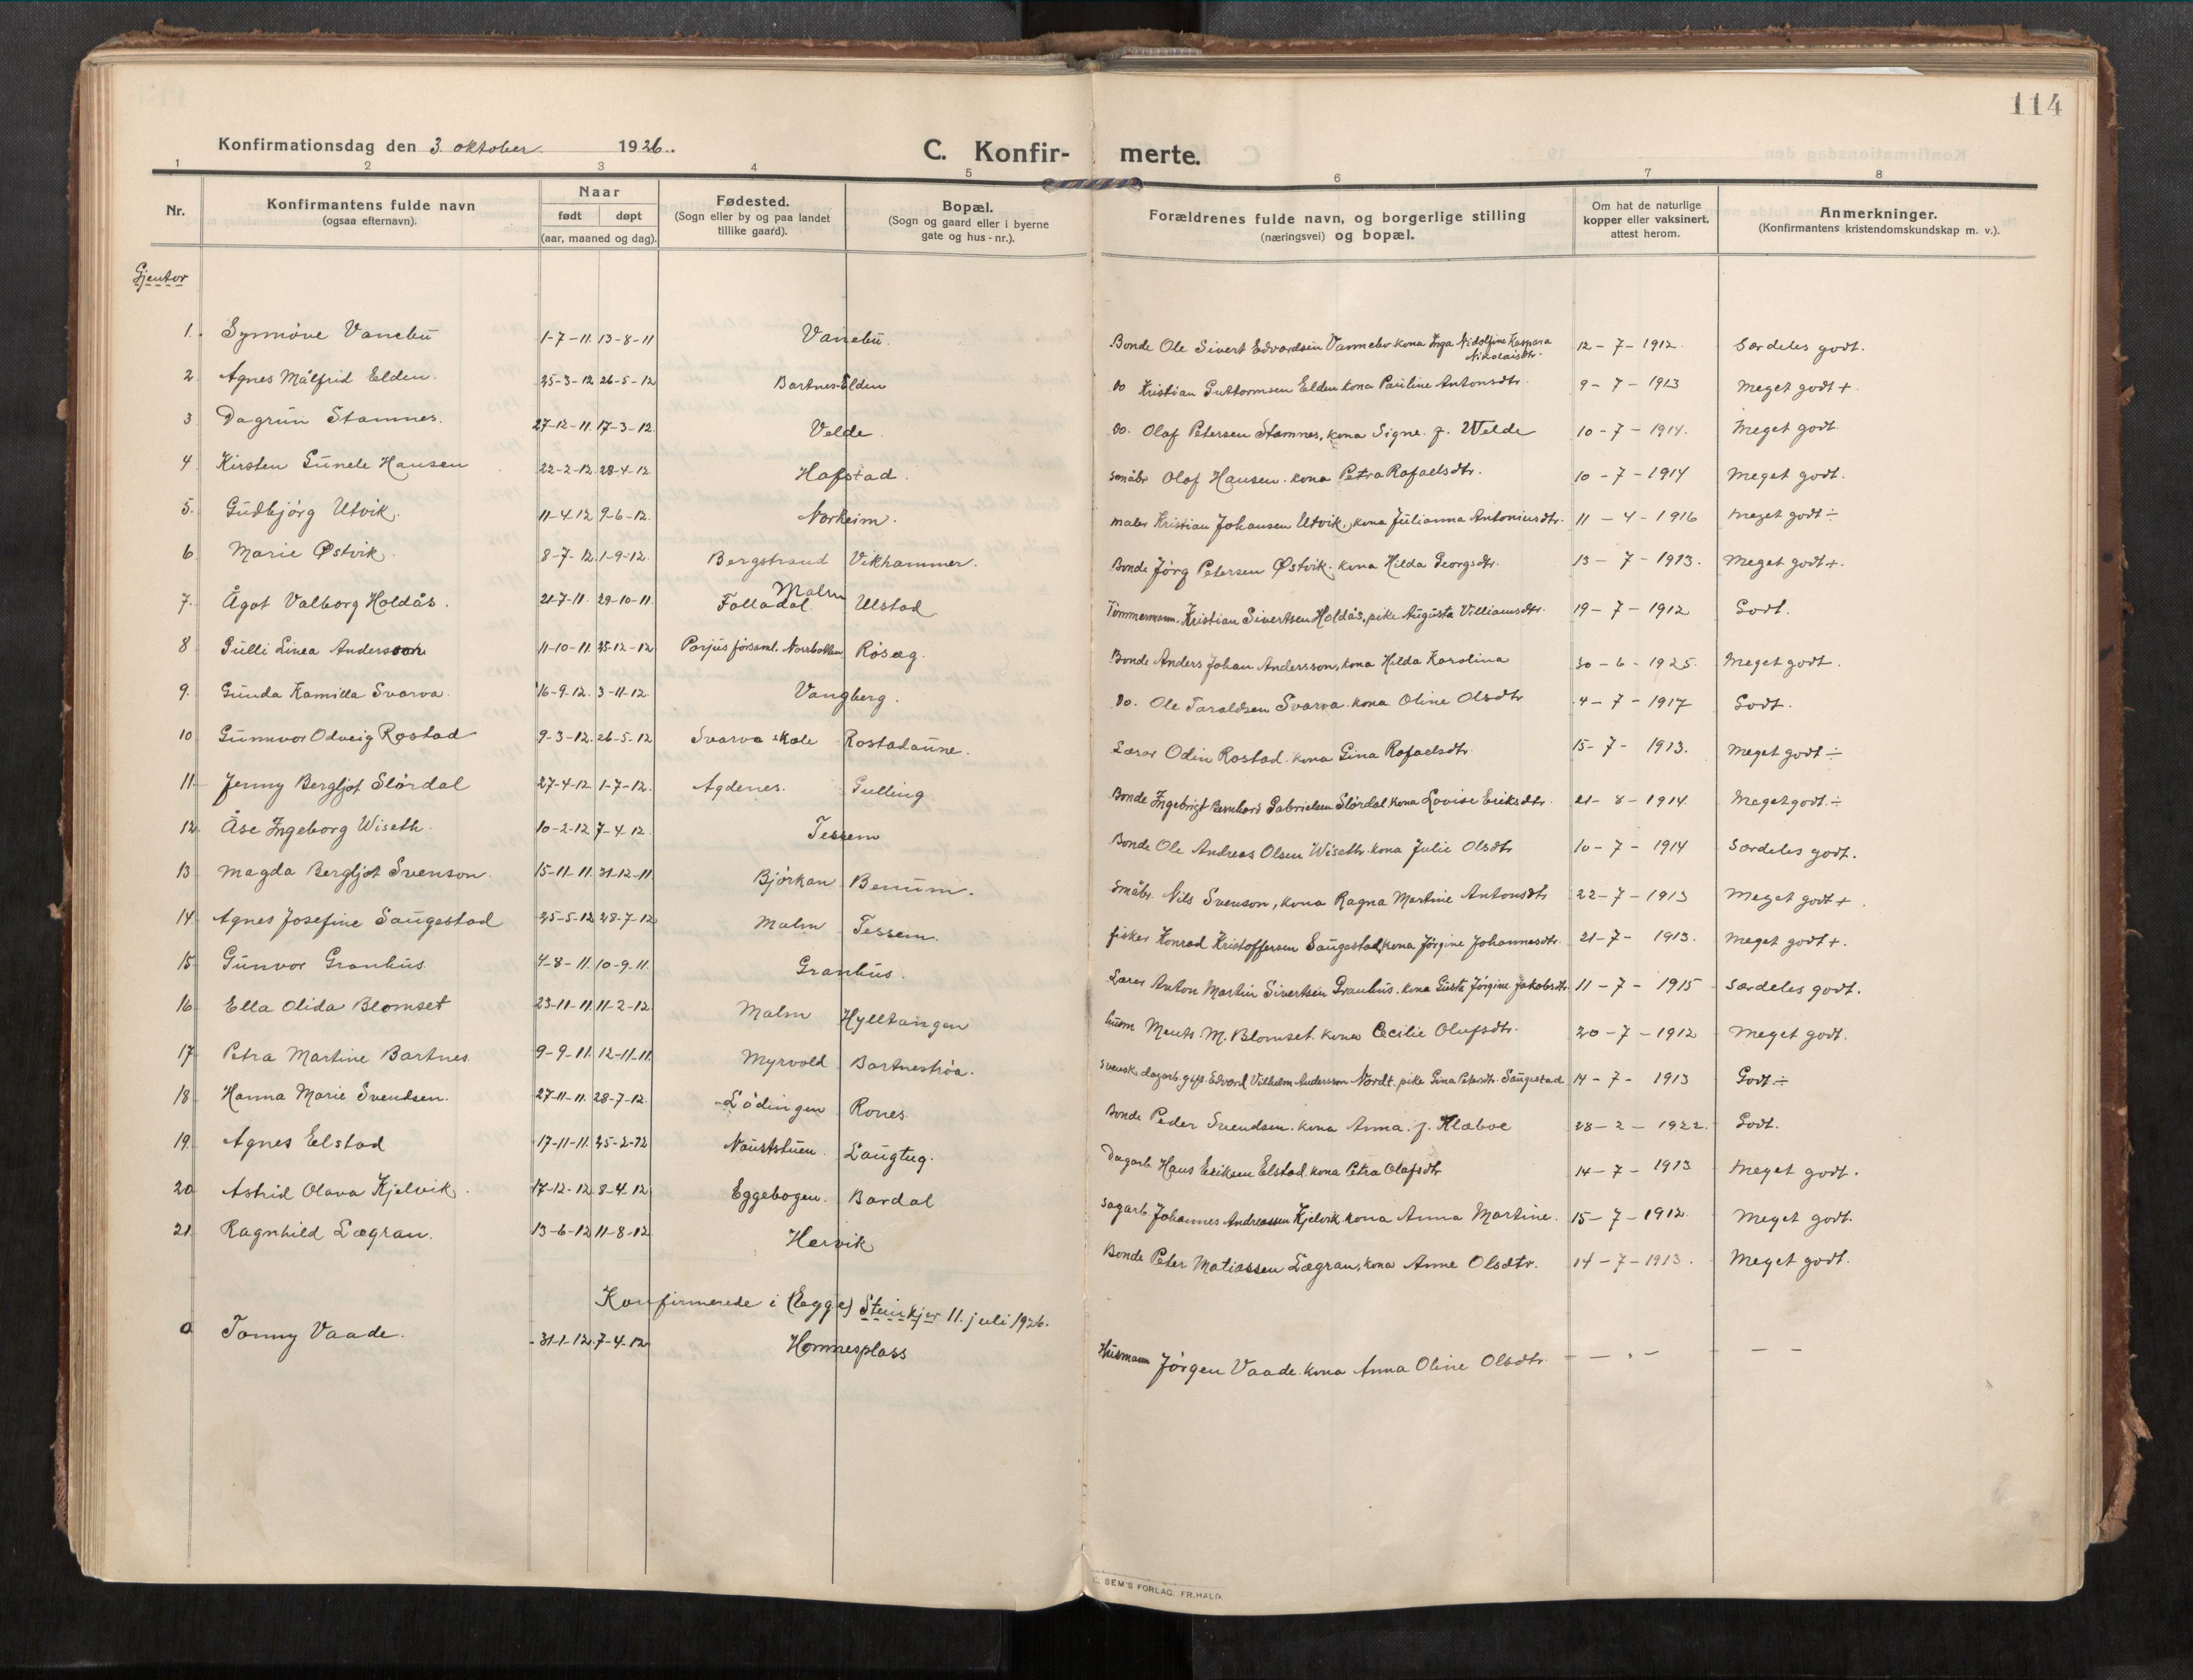 114
Konfirmationsdag den 3. oktober 1926.
C. Konfir- merte.
1 2 3 4 5 6 7 8
Nr.
Konfirmantens fulde navn
(ogsaa efternavn).
Naar
født døpt
(aar, maaned og dag).
Fødested.
(Sogn eller by og paa landet
tillike gaard).
Bopæl.
(Sogn og gaard eller i byerne
gate og hus-nr.).
Forældrenes fulde navn, og borgerlige stilling
(næringsvei) og bopæl.
Om hat de naturlige
kopper eller vaksinert,
attest herom.
Anmerkninger.
(Konfirmantens kristendomskundskap m. v.).
Gjentor
1. Synnöve Vanebu 1-7-11. 13-8-11 Vanebu. Bonde Ole Sivert Edvardsen Vannebo kona Inga Nidolfine Kaspara Nikolaisdtr. 12-7-1912. Særdeles godt.
2 Agnes Målfrid Elden. 25-3-12 26-5-12 Bartnes-Elden Do Kristian Guttormsen Elden kona Pauline Antonsdtr. 9-7-1913 Meget godt +
3 Dagrun Stamnes. 27-12-11. 17-3-12. Velde. Do. Olaf Petersen Stamnes, kona Signe. f. Welde 10-7-1914. Meget godt.
4 Kirsten Gunele Hansen 22-2-12. 28-4-12 Hafstad. småbr Olaf Hansen. kona Petra Rafaelsdtr. 10-7-1914 Meget godt.
5. Gudbjörg Utvik. 11-4.12 9-6-12. Norheim. maler Kristian Johansen Utvik, kona Julianna Antoniusdtr. 11-4-1916 Meget godt ÷
6 Marie Østvik. 8-7-12. 1-9-12. Bergstrand Vikhammer. Bonde Jörg Petersen Østvik. kona Hilda Georgsdtr. 13-7-1913. Meget godt +.
7. Ågot Valborg Holdås. 21-7-11. 29-10-11. Malm Folladal. Ulstad Tömmermann. Kristian Sivertsen Holdås, pike Augusta Villiamsdtr. 19-7-1912 Godt.
8 Gulli Linea Andersson 11-10-11. 25-12-12 Porjus församl. Norrbotten Rösæg. Bonde Anders Johan Andersson, kona Hilda Karolina 30-6-1925. Meget godt.
9. Gunda Kamilla Svarva. 16-9.12. 3-11-12. Vangberg. Do. Ole Taraldsen Svarva. kona Oline Olsdtr 4-7-1917 Godt.
10 Gunnvor Odveig Rostad 9-3-12. 26-5-12 Svarva skole Rostadaune. Lærer Odin Rostad. kona Gina Rafaelsdtr. 15-7-1913. Meget godt ÷
11 Jenny Bergljot Slördal 27-4-12 1-7-12. Agdenes. Gulling. Bonde Ingebrigt Bernhard Gabrielsen Slördal kona Lovise Eriksdtr. 21-8-1914. Meget godt ÷
12. Åse Ingeborg Wiseth. 10-2-12 7-4.12. Tessem Bonde Ole Andreas Olsen Wiseth. kona Julie Olsdtr 10-7-1914 Særdeles godt.
13 Magda Bergljot Svenson. 15-11-11. 31-12-11 Björkan Benum. småbr. Nils Svenson, kona Ragna Martine Antonsdtr 22-7-1913 Meget godt +.
14. Agnes Josefine Saugestad 25-5-12 28-7-12 Malm Tessem. fisker Konrad Kristoffersen Saugestad, kona Jörgine Johannesdtr. 21-7-1913. Meget godt +.
15 Gunvor Granhus 4-8-11. 10-9-11. Granhus. Lærer Anton Martin Sivertsen Granhus. kona Gusta Jörgine Jakobsdtr. 11-7-1915 Særdeles godt.
16 Ella Olida Blomset 23-11-11. 11-2-12 Malm Hylltangen husm Ments. M. Blomset. kona Cecilie Olufsdtr. 20-7-1912 Meget godt.
17 Petra Martine Bartnes 9-9-11. 12-11-11. Myrvold Bartneströa. Svensk dagarb. gift. Edvard Vilhelm Andersson Nordt. pike Gina Petersdtr. Saugestad 14-7-1913 Godt ÷
18 Hanna Marie Svendsen. 27-11-11. 28-7-12. Lödingen Rones. Bonde Peder Svendsen. kona Anna. f. Klæboe 28-2-1922. Godt.
19. Agnes Elstad 17-11-11. 25-2-12 Nauststuen. Laugtug. Dagarb. Hans Eriksen Elstad. kona Petra Olafsdtr 14-7-1913 Meget godt.
20 Astrid Olava Kjelvik. 17-12-12 8-4.12 Eggebogen. Bardal Sagarb. Johannes Andreassen Kjelvik kona Anna Martine. 15-7-1912. Meget godt.
21 Ragnhild Lægran. 13-6-12 11-8-12 Hervik Bonde Peter Matiassen Lægran, kona Anne Olsdtr. 14-7-1913. Meget godt.
Konfirmerede i (Egge) Steinkjer 11. juli 1926.
0 Tonny Vaade. 31-1-12. 7-4-12 Hommesplass Husmann Jörgen Vaade. kona Anna Oline Olsdtr. — — — — —
SEM'S FORLAG, FR.HALD